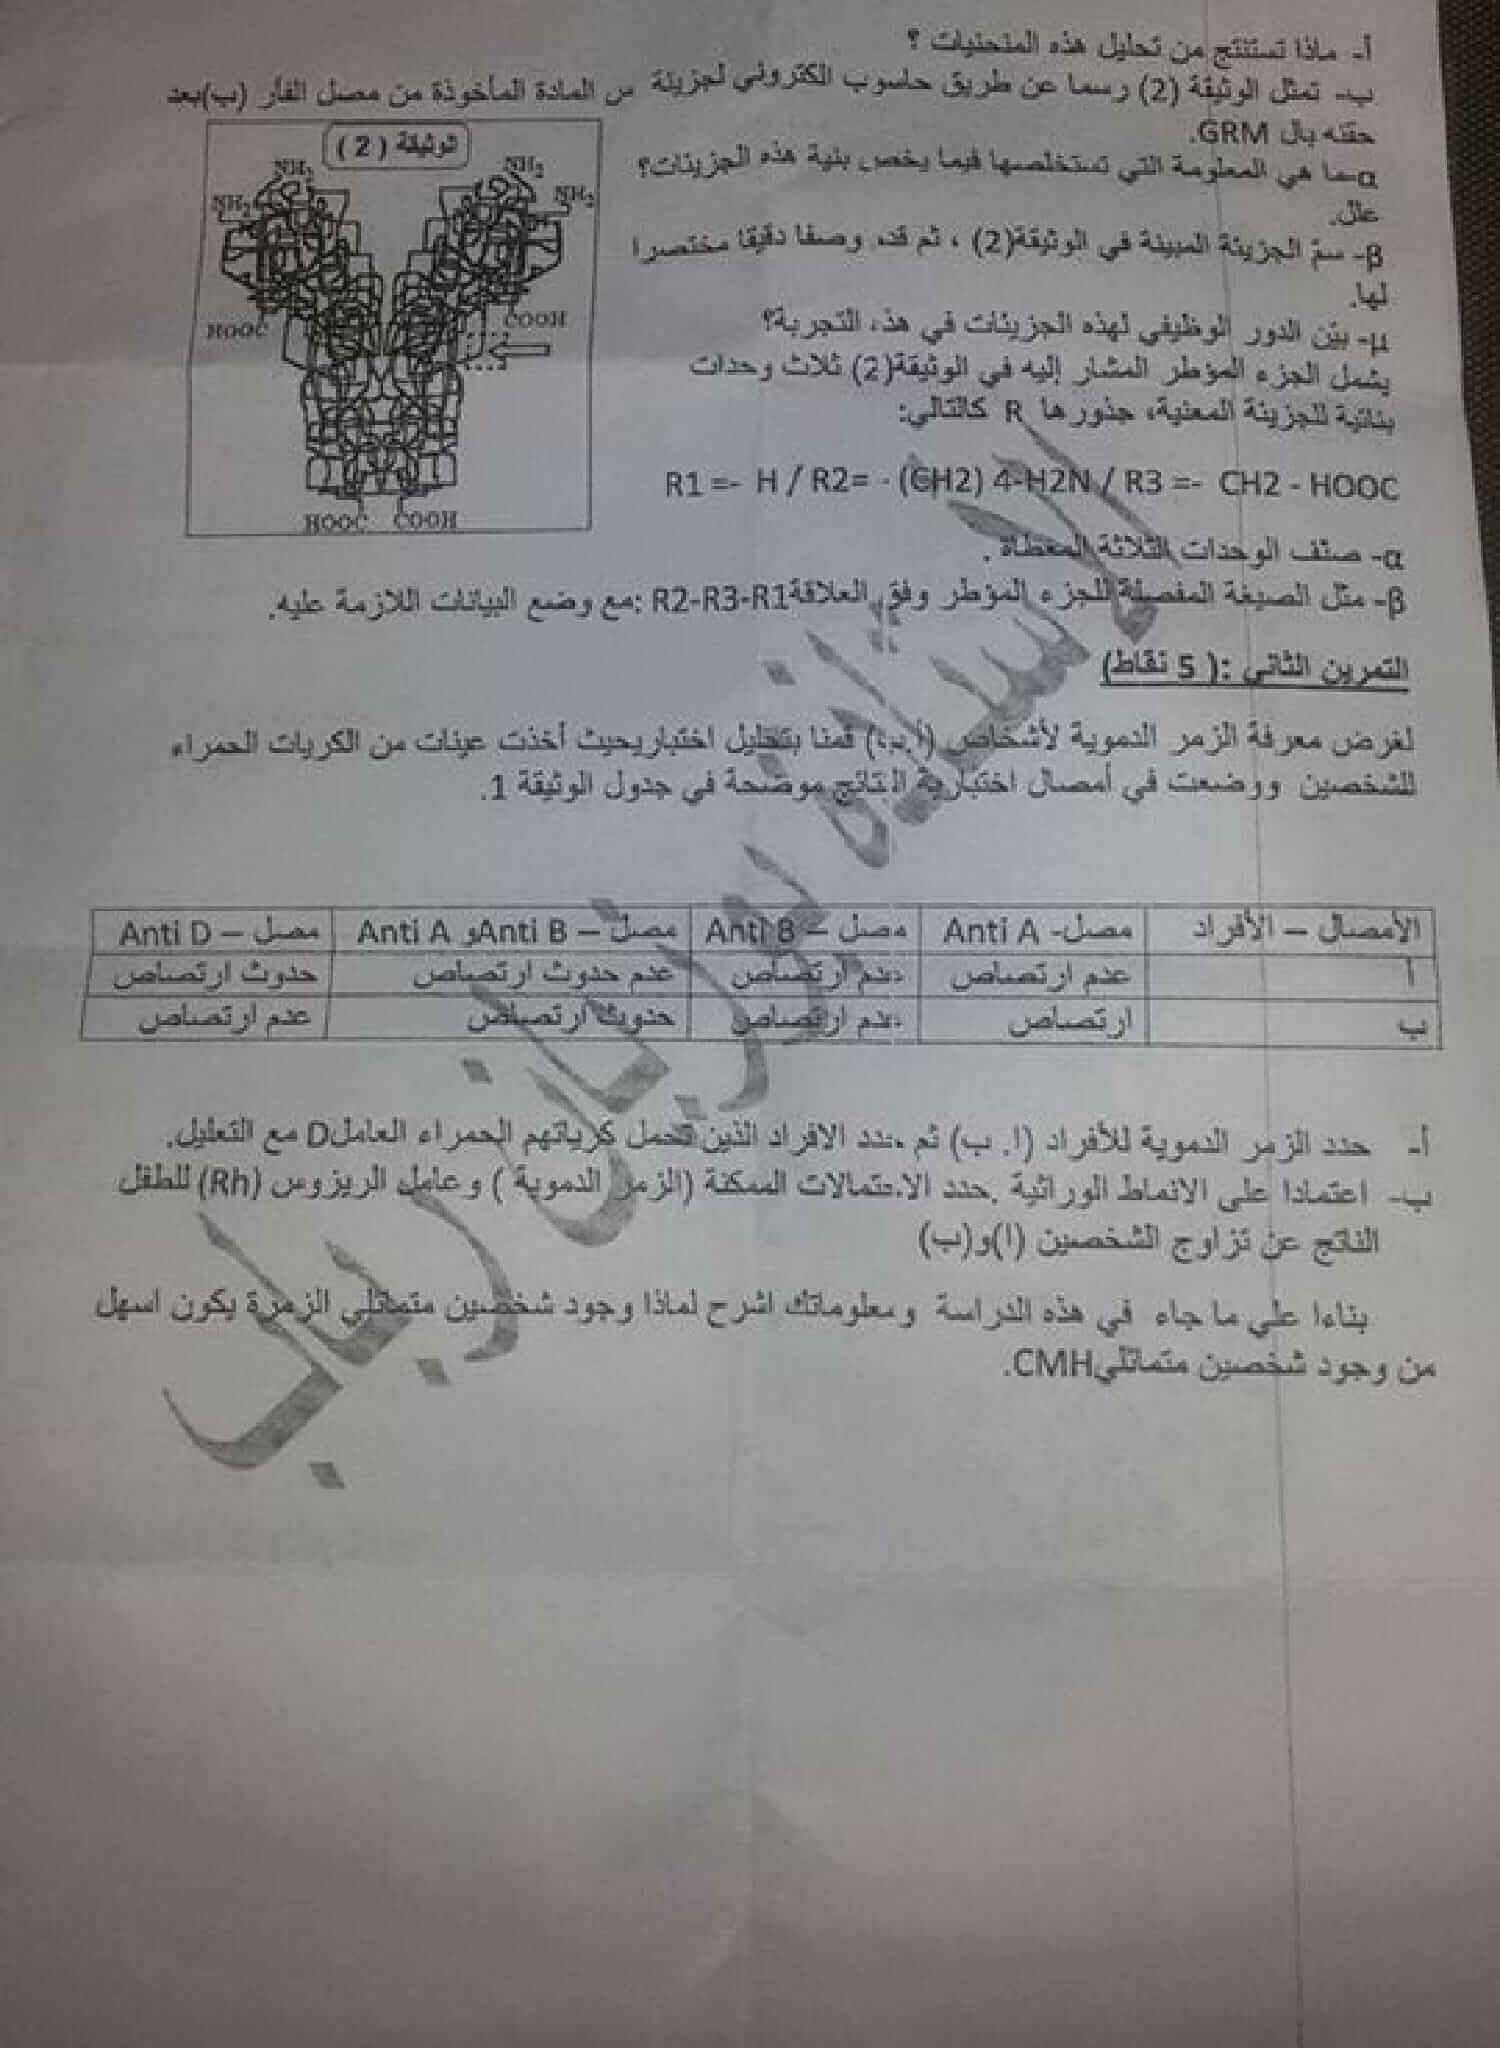 أ- ماذا تستنتج من تحليل هذه المنحنيات ؟
ب- تمثل الوثيقة (2) رسما عن طريق حاسوب الكتروني لجزيئة س المادة المأخوذة من مصل الفأر (ب)بعد
حقنه بال GRM.
α-ما هي المعلومة التي تستخلصها فيما يخص بنية هذه الجزيئات؟
علل.
β- سمّ الجزيئة المبينة في الوثيقة(2) ، ثم قد، وصفا دقيقا مختصرا
لها.
μ- بيّن الدور الوظيفي لهذه الجزيئات في هذ، التجربة؟
يشمل الجزء المؤطر المشار إليه في الوثيقة(2) ثلاث وحدات
بنائية للجزيئة المعنية، جذورها R كالتالي:
الوثيقة ( 2 )
NH2 NH2
NH2 NH2
HOOC COOH
HOOC COOH
R1 =- H / R2= - (CH2) 4-H2N / R3 =- CH2 - HOOC
α- صنّف الوحدات الثلاثة المعطاة .
β- مثل الصيغة المفصلة للجزء المؤطر وفق العلاقة R2-R3-R1 :مع وضع البيانات اللازمة عليه.
التمرين الثاني :( 5 نقاط)
لغرض معرفة الزمر الدموية لأشخاص (أ.ب،) قمنا بتحليل اختباريحيث أخذت عينات من الكريات الحمراء
للشخصين ووضعت في أمصال اختبارية النتائج موضحة في جدول الوثيقة 1.
الأمصال – الأفراد مصل- Anti A مصل – Anti B مصل – Anti B و Anti A مصل – Anti D
أ عدم ارتصاص عدم ارتصاص عدم حدوث ارتصاص حدوث ارتصاص
ب ارتصاص عدم ارتصاص حدوث ارتصاص عدم ارتصاص
أ- حدد الزمر الدموية للأفراد (ا. ب) ثم حدد الافراد الذين تحمل كرياتهم الحمراء العاملD مع التعليل.
ب- اعتمادا على الانماط الوراثية .حدد الاحتمالات الممكنة (الزمر الدموية ) وعامل الريزوس (Rh) للطفل
الناتج عن تزاوج الشخصين (ا)و(ب)
بناءا علي ما جاء في هذه الدراسة ومعلوماتك اشرح لماذا وجود شخصين متماثلي الزمرة يكون اسهل
من وجود شخصين متماثليCMH.
الأستاذة بوزيان رباب